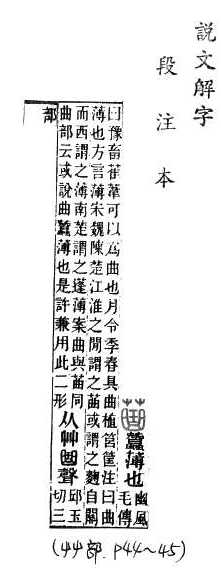 說文解字
段注本
蠶薄也
豳風
毛傳
曰豫畜萑葦可以爲曲也月令季春具曲植筥筐注曰曲
薄也方言薄宋魏陳楚江淮之閒謂之䒼或謂之麴自關
而西謂之薄南楚謂之蓬薄案曲與䒼同
曲部云或說曲蠶薄也是許兼用此二形
从艸曲聲
邱玉
切三
部
(艸部. P44～45)